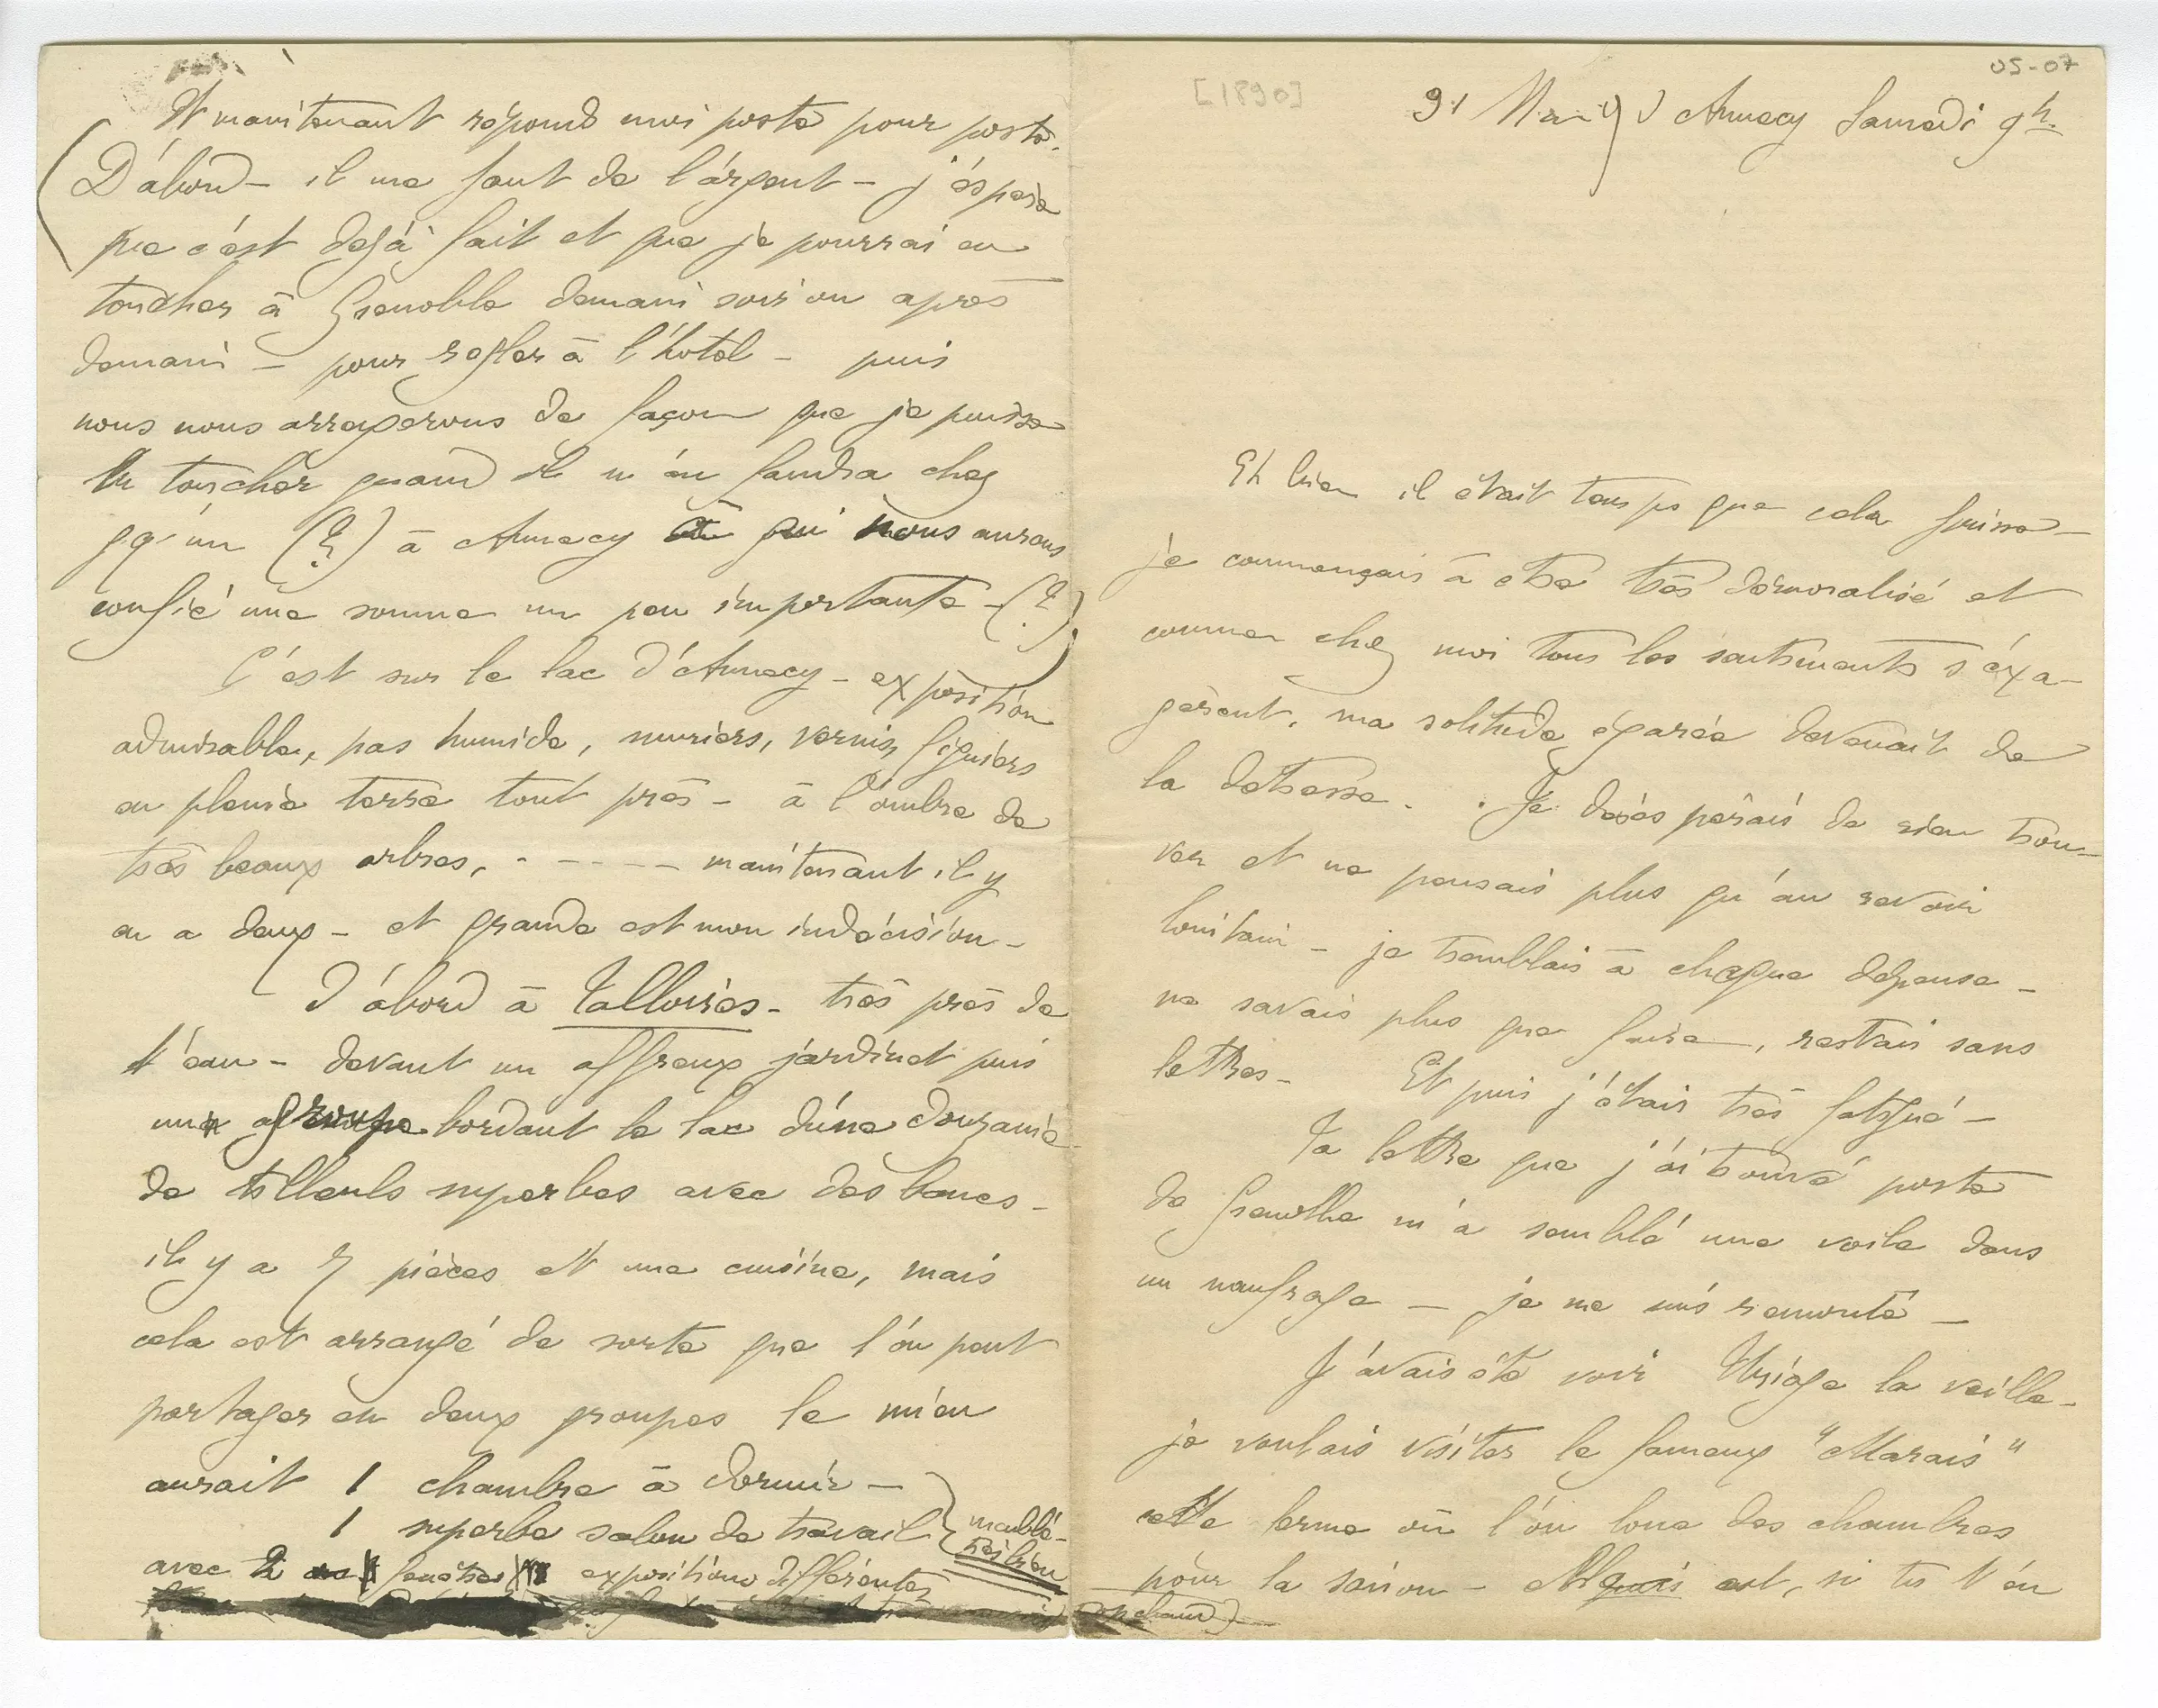 05-07
[1890]
31 Mai 90 Annecy Samedi 9h.
Eh bien il était temps que cela finisse –
je commençais à etre très démoralisé et
comme chez moi tous les sentiments s'éxa-
gèrent, ma solitude égarée devenait de
la detresse. . Je désespérais de rien trou-
ver et ne pensais plus qu'au revoir
lointain – je tremblais à chaque dépense –
ne savais plus que faire, restais sans
lettres – Et puis j'étais très fatigué –
Ta lettre que j'ai trouvé poste
de Grenoble m'a semblé une voile dans
un naufrage – je me suis remonté –
J'avais été voir Uriage la veille –
je voulais visiter le fameux "Marais"
cette ferme où l'on loue des chambres
pour la saison – est, si tu t'en
Et maintenant répond moi poste pour poste.
(D'abord – il me faut de l'argent – j'éspère
que c'est dejà fait et que je pourrai en
toucher à Grenoble demain soir ou après
demain – pour regler à l'hotel – puis
nous nous arragerons de façon que je puisse
en toucher quand il m'en faudra chez
qq'un (?) à Annecy à qui nous aurons
confié une somme un peu importante – (?))
C'est sur le lac d'Annecy – exposition
admirable, pas humide, muriers, vernis, figuiers
en pleine terre tout près – à l'ombre de
très beaux arbres, - - - - - maintenant il y
en a deux – et grande est mon indécision –
D'abord à Talloires – très près de
l'eau – devant un affreux jardinet puis
un groupe bordant le lac d'une douzaine
de tilleuls superbes avec des bancs –
il y a 7 pièces et une cuisine, mais
cela est arrangé de sorte que l'on peut
partager en deux groupes le mien
aurait 1 chambre à dormir –
1 superbe salon de travail } meublé –
très bien
avec 2 fenêtres expositions différentes
chaud) –